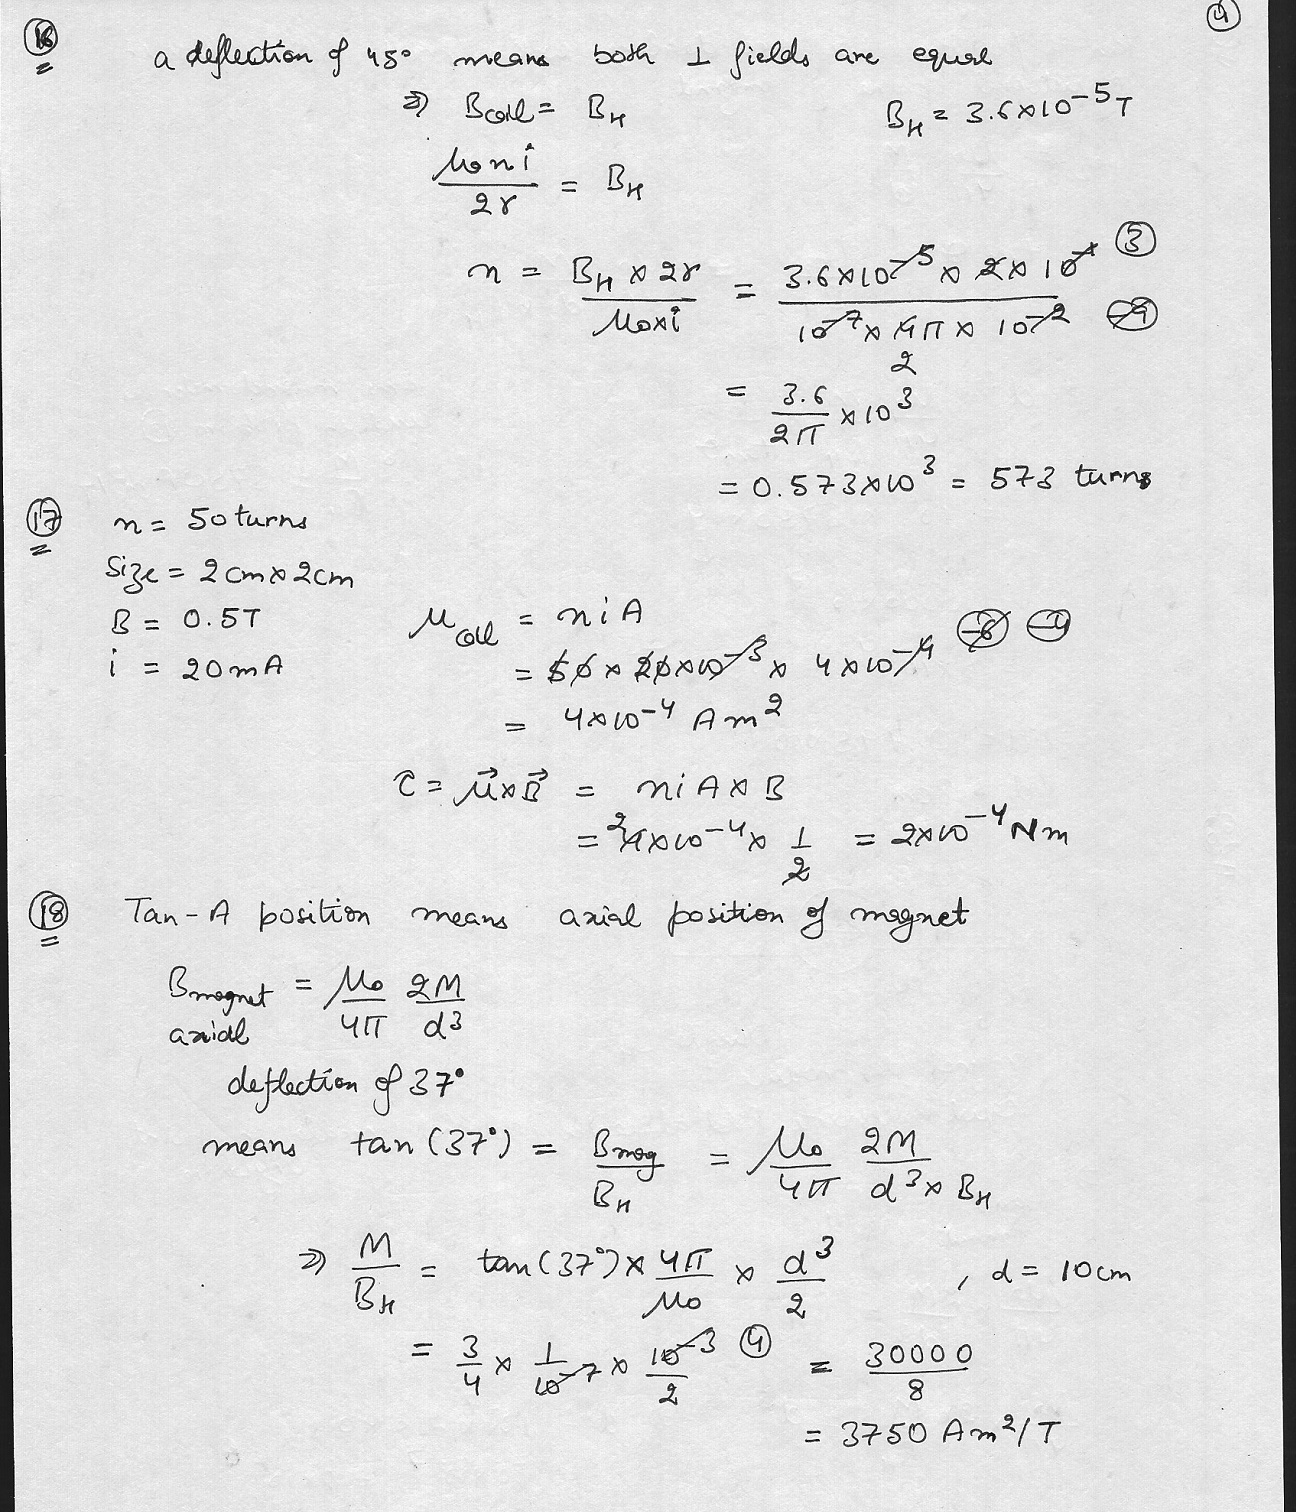 4
16
a deflection of 45° means both ⊥ fields are equal
⇒ Bcoil = BH    BH = 3.6×10^-5 T
μ0 n i / 2r = BH
n = BH × 2r / μ0×i = 3.6×10^-5 × 2×10^-1 / 10^-7 × 4π × 10^-2 (3) (-9)
2
= 3.6/2π × 10^3
= 0.573×10^3 = 573 turns
17 n = 50 turns
Size = 2cm×2cm
B = 0.5T    μcoil = niA
i = 20mA    = 50 × 20×10^-3 × 4×10^-4 (-4)
= 4×10^-4 Am^2
τ = μ⃗×B⃗ = niA×B
= 4×10^-4 × 1/2 = 2×10^-4 Nm
18 Tan-A position means axial position of magnet
Bmagnet axial = μ0/4π 2M/d^3
deflection of 37°
means tan(37°) = Bmag/BH = μ0/4π 2M/d^3×BH
⇒ M/BH = tan(37°) × 4π/μ0 × d^3/2 , d = 10cm
= 3/4 × 1/10^-7 × 10^-3/2 (4) = 30000/8
= 3750 Am^2/T